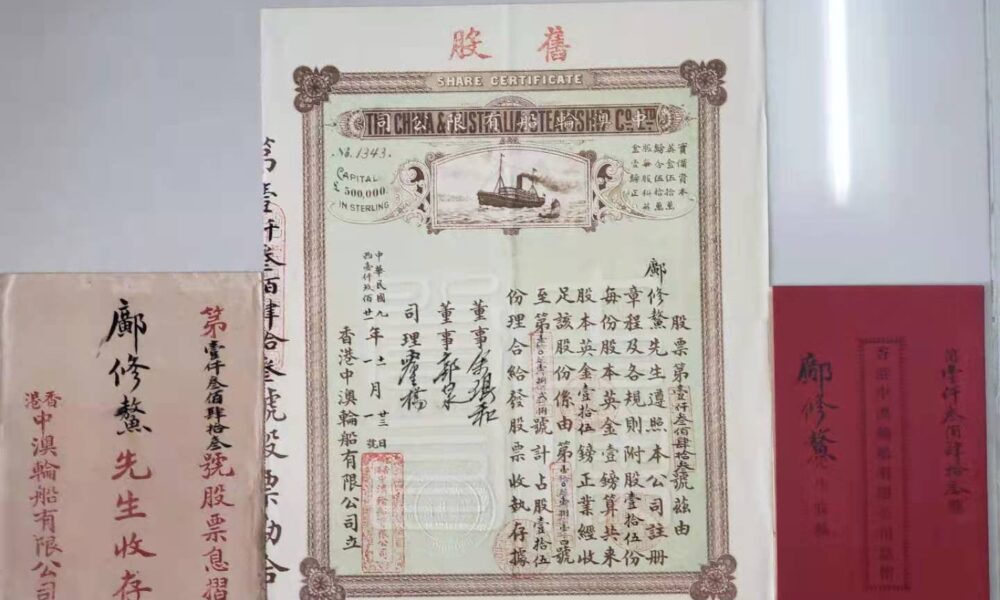 舊股
SHARE CERTIFICATE
THE CHINA & AUSTRALIA STEAMSHIP CO. LTD
中澳輪船有限公司
No. 1343.
CAPITAL
£ 500,000.
IN STERLING
實備資本
英金伍拾萬
鎊分伍拾萬
股每股科英
金壹鎊正
股票第壹仟叁佰肆拾叁號茲由
鄺修鰲先生遵照本公司註册
章程及各規則附股壹拾伍份
每份股本英金壹鎊算共來
股本英金壹拾伍鎊正業經收
足該股份係由第
號
至第
號計占股壹拾伍
份理合給發股票收執存據
董事余琨和
董事
司理
中華民國九年十一月廿三日
西壹仟玖佰廿一年一月一號
香港中澳輪船有限公司立
第壹仟叁佰肆拾叁號股票勘合
第壹仟叁佰肆拾叁號股票息摺
鄺修鰲先生收存
香港中澳輪船有限公司
鄺修鰲